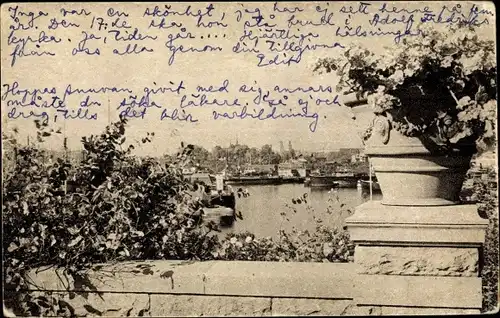 Inga var en skönhet jag har ej sett henne på fem
år. Den 17:de ska hon stå brud i Adolf Fredriks
kyrka. Ja, tiden går.... Hjärtliga hälsningar
från oss alla genom din tillgivna
Edit
Hoppas snuvan givit med sig, annars
måste du söka läkare, så ej och
drag tills det blir varbildning.